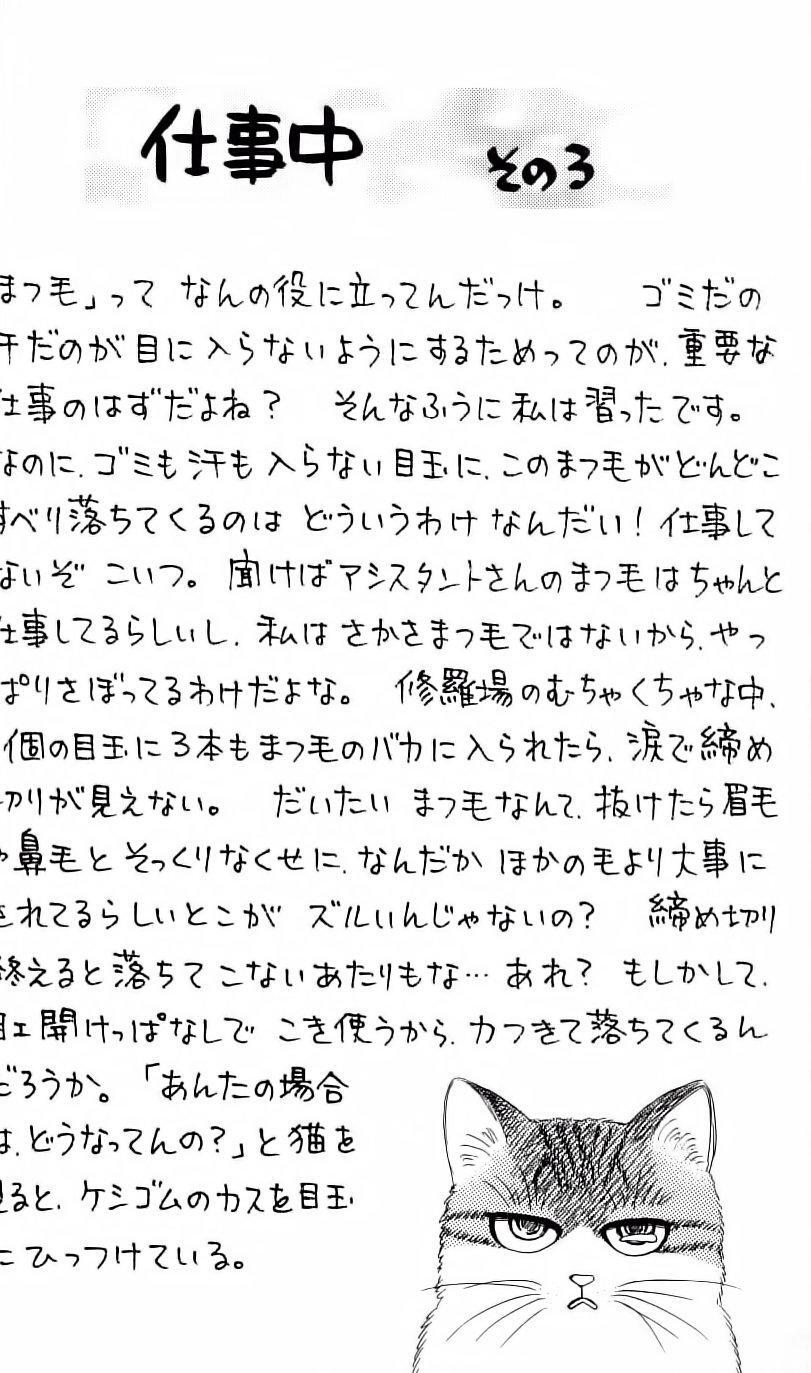 仕事中 その3
まつ毛」って なんの役に立ってんだっけ。 ゴミだの
汗だのが目に入らないようにするためってのが、重要な
仕事のはずだよね? そんなふうに私は習ったです。
なのに、ゴミも汗も入らない目玉に、このまつ毛がどんどこ
すべり落ちてくるのは どういうわけなんだい!仕事して
ないぞ こいつ。 聞けばアシスタントさんのまつ毛はちゃんと
仕事してるらしいし、私はさかさまつ毛ではないから、やっ
ぱりさぼってるわけだよな。 修羅場のむちゃくちゃな中、
1個の目玉に3本もまつ毛のバカに入られたら、涙で締め
切りが見えない。 だいたい まつ毛なんて、抜けたら眉毛
や鼻毛とそっくりなくせに、なんだか ほかの毛より大事に
されてるらしいとこが ズルいんじゃないの? 締め切り
終えると落ちてこないあたりもな… あれ? もしかして、
目ェ開けっぱなしで こき使うから、力つきて落ちてくるん
だろうか。「あんたの場合
は、どうなってんの?」と猫を
見ると、ケシゴムのカスを目玉
にひっつけている。